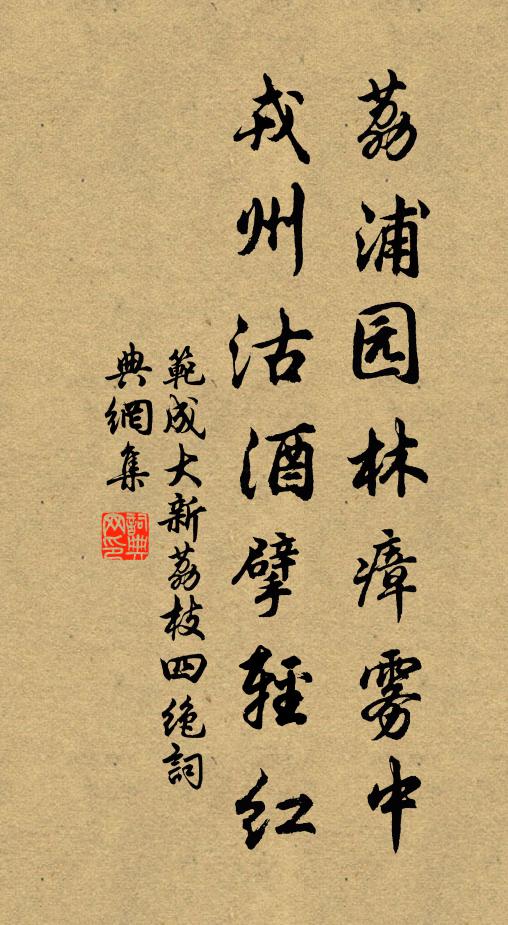 荔浦园林瘴雾中
戎州沽酒擘轻红
範成大新荔枝四绝詞
典網集
詞典網印